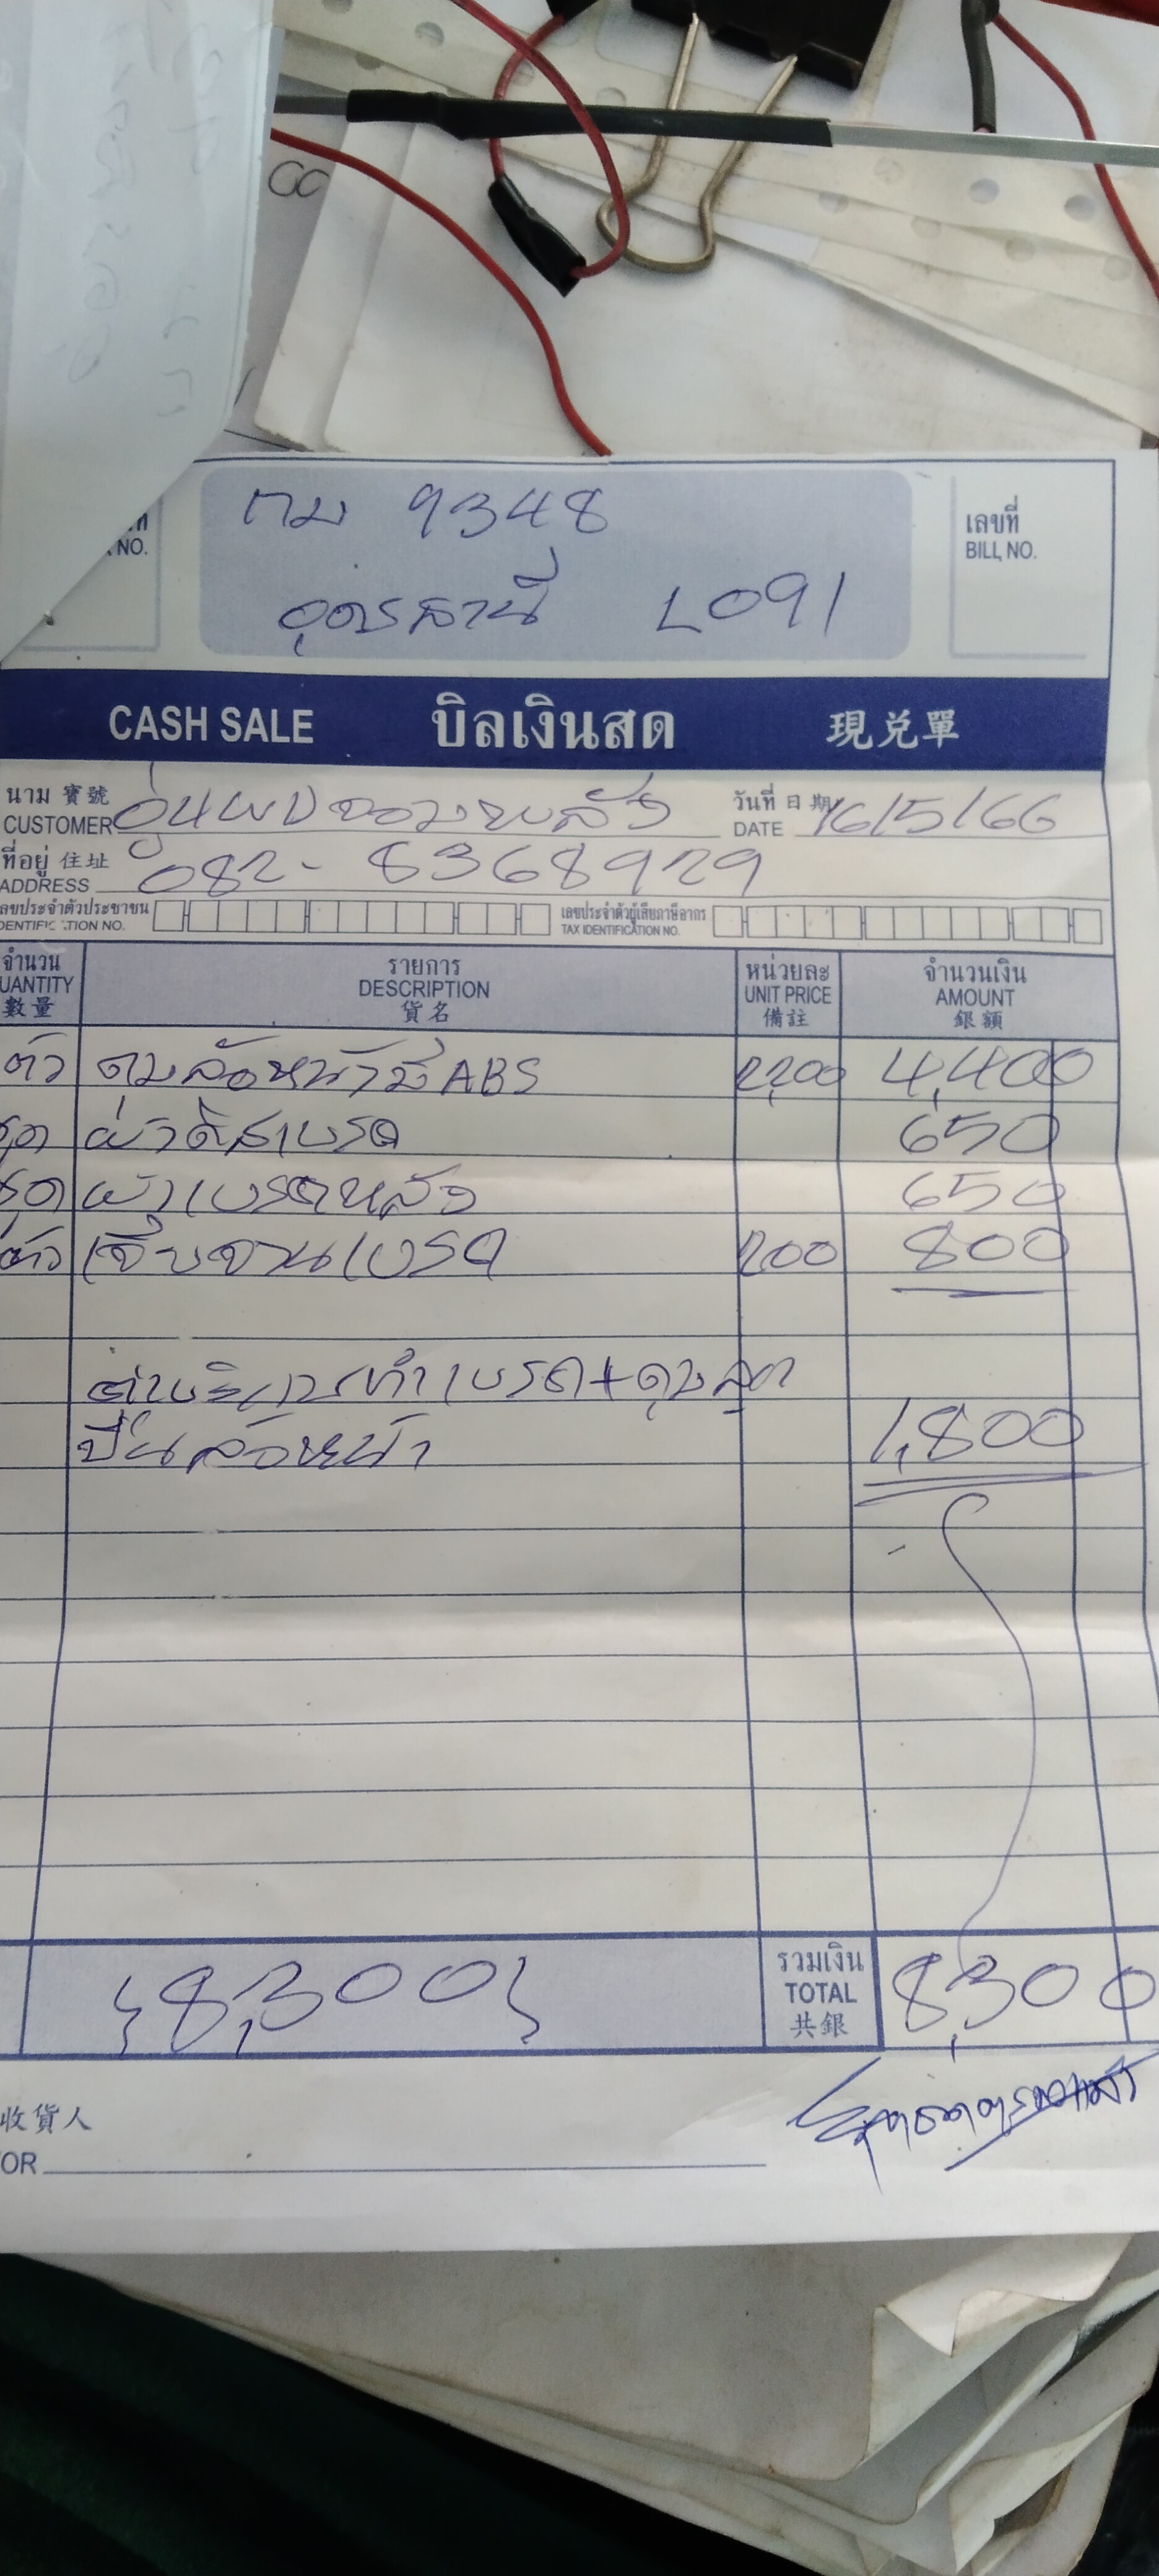 กม 9348
อุดรธานี L091
NO.
เลขที่
BILL NO.
CASH SALE บิลเงินสด 現兌單
นาม 寶號
CUSTOMER
วันที่ 日期
DATE 16/5/66
ที่อยู่ 住址
ADDRESS 082-8368929
ลขประจำตัวประชาชน
DENTIFICATION NO.
เลขประจำตัวผู้เสียภาษีอากร
TAX IDENTIFICATION NO.
จำนวน
UANTITY
數量
รายการ
DESCRIPTION
貨名
หน่วยละ
UNIT PRICE
備註
จำนวนเงิน
AMOUNT
銀額
ตัว ดุมล้อหน้ามี ABS 2,200 4,400
ชุด ผ้าดิสเบรค 650
ชุด ผ้าเบรคหลัง 650
ตัว เจียจานเบรค 200 800
ค่าบริการทำเบรค+ดุมลูก
ปืนล้อหน้า 1,800
8,300
รวมเงิน
TOTAL
共銀
8,300
收貨人
OR